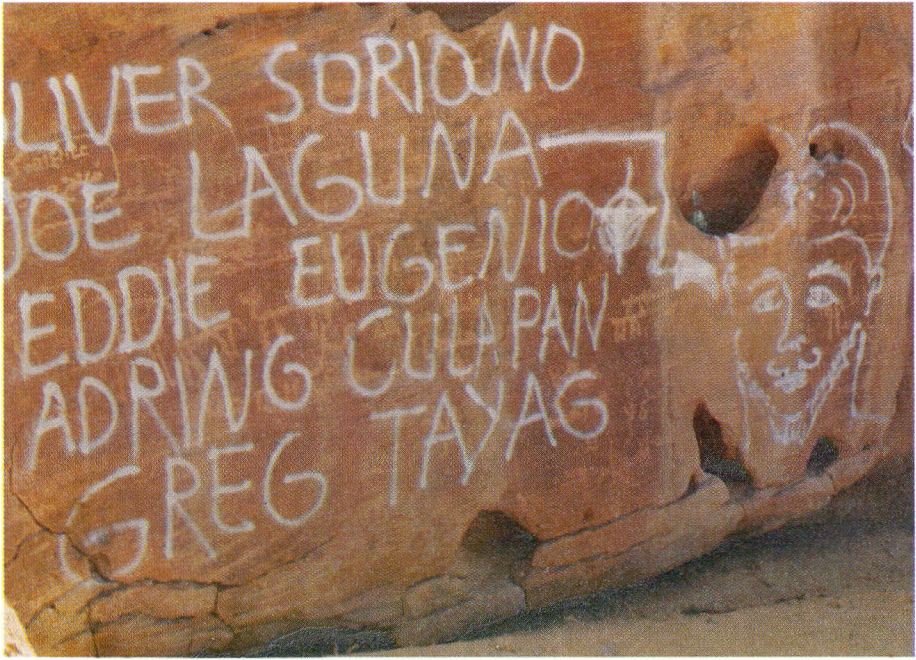 LIVER SORIANO
JOE LAGUNA
EDDIE EUGENIO
ADRING CULAPAN
GREG TAYAG